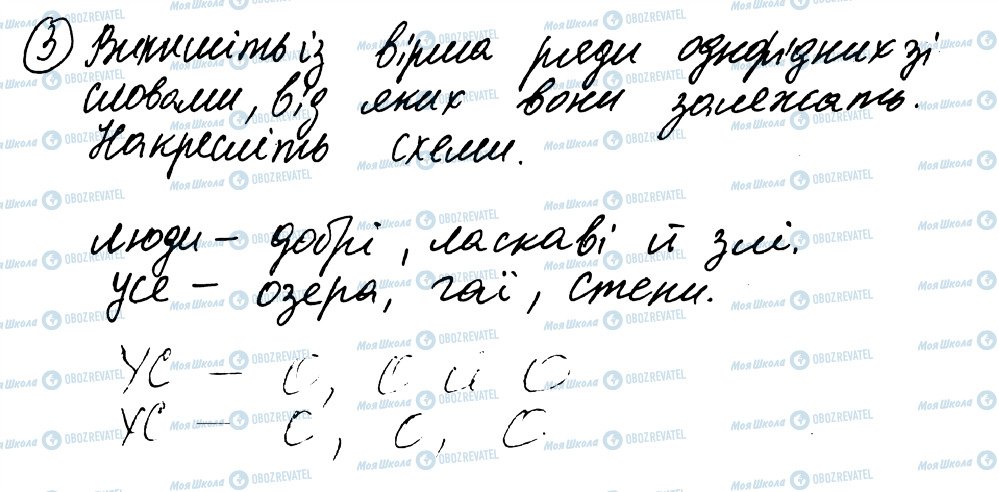 ③ Випишіть із вірша ряди однорідних зі
словами, від яких вони залежать.
Накресліть схеми.
люди – добрі, ласкаві й злі.
Усе – озера, гаї, степи.
УС – О, О й О
УС – О, О, О.